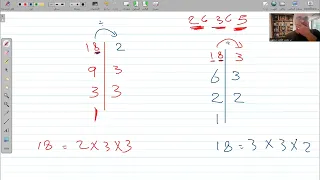 2 6 3 6 5
÷
18 | 2
9 | 3
3 | 3
1
18 = 2 × 3 × 3
÷
18 | 3
6 | 3
2 | 2
1
18 = 3 × 3 × 2